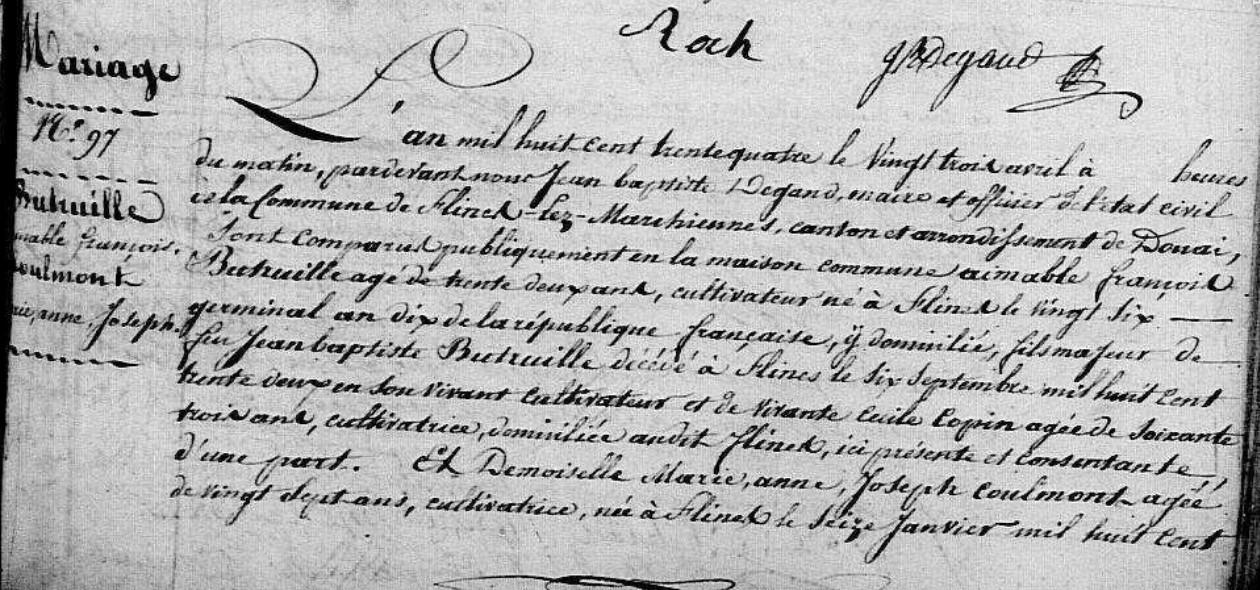 Roch
JBDegand
Mariage
N.º 97
Butruille
aimable françois.
Coulmont
marie, anne, Joseph.
L'an mil huit cent trente quatre le vingt trois avril à heures
du matin, pardevant nous Jean baptiste Degand, maire et officier de l'état civil
de la Commune de Flines-lez-Marchiennes, canton et arrondissement de Douai,
Sont comparus publiquement en la maison commune aimable françois
Butruille agé de trente deux ans, cultivateur né à Flines le vingt six
germinal an dix de la république française, y domicilié, fils majeur de
feu Jean baptiste Butruille décédé à Flines le six Septembre mil huit cent
trente deux en son vivant cultivateur et de vivante Cécile Copin agée de soixante
trois ans, cultivatrice, domiciliée audit flines, ici présente et consentante,
d'une part. Et Demoiselle Marie, anne, Joseph Coulmont agée
de vingt Sept ans, cultivatrice, née à Flines le seize Janvier mil huit cent